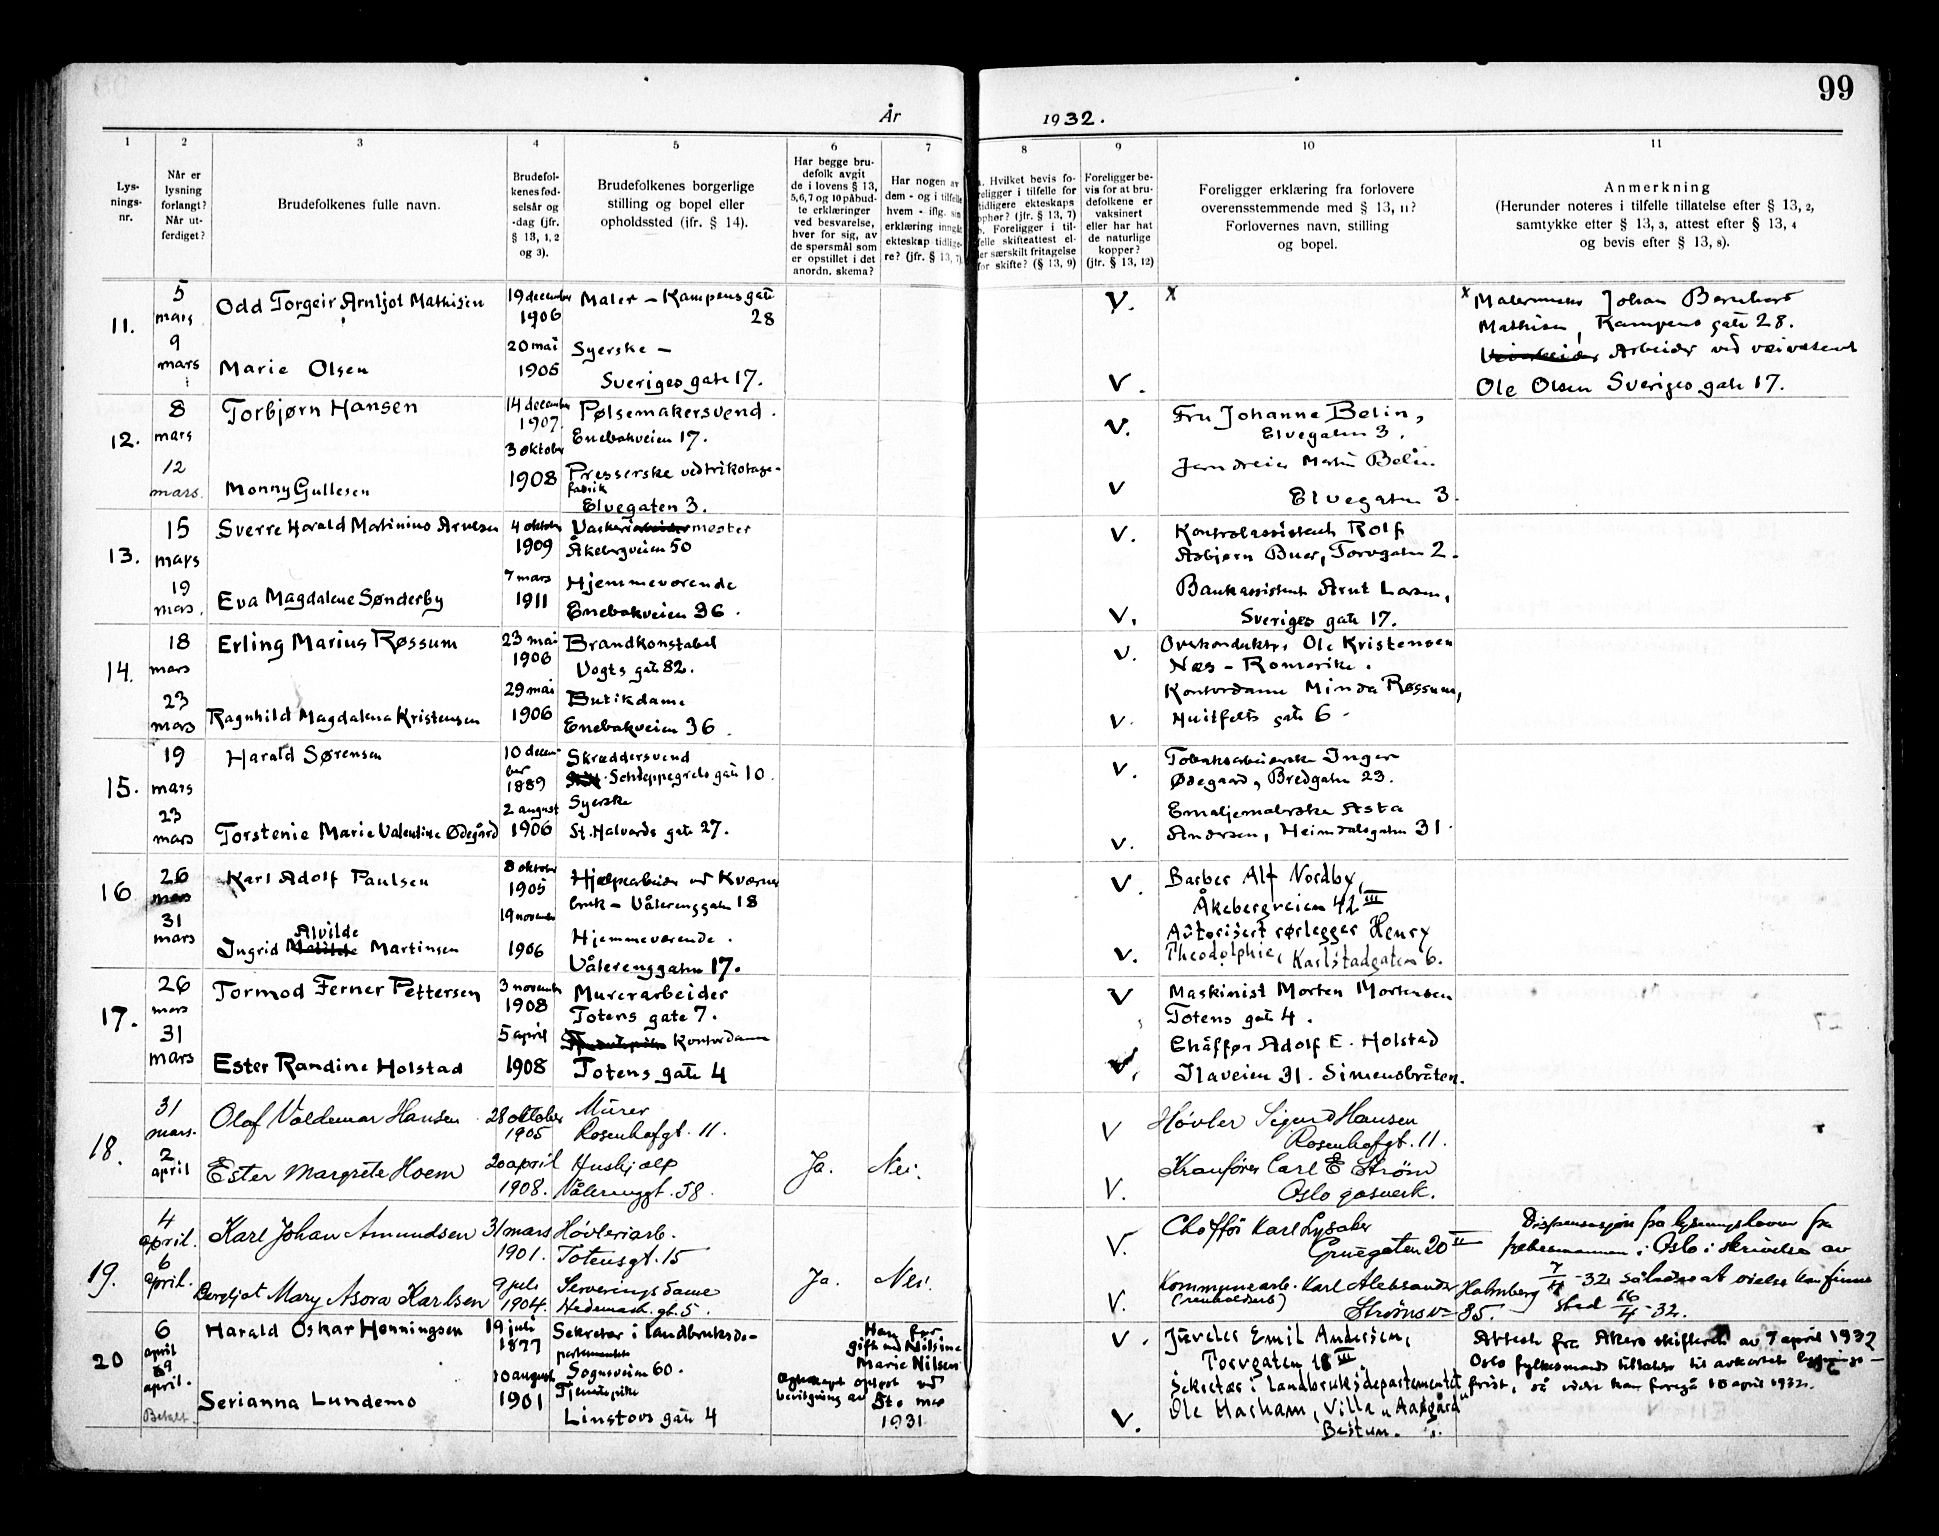 99
År 1932.
1
2
3
4
5
6
7
8
9
10
11
Lys-
nings-
nr.
Når er
lysning
forlangt?
Når ut-
ferdiget?
Brudefolkenes fulle navn.
Brudefol-
kenes fød-
selsår og
-dag (jfr.
§ 13, 1, 2
og 3).
Brudefolkenes borgerlige
stilling og bopel eller
opholdssted (jfr. § 14).
Har begge bru-
defolk avgit
de i lovens § 13,
5, 6, 7 og 10 påbud-
te erklæringer
ved besvarelse,
hver for sig, av
de spørsmål som
er opstillet i det
anordn. skema?
Har nogen av
dem - og i tilfelle
hvem - iflg. sin
erklæring inngå
ekteskap tidlige-
re? (jfr. § 13, 7)
. Hvilket bevis fo-
religger i tilfelle for
tidligere ekteskaps
ophør? (jfr. § 13, 7)
b. Foreligger i til-
felle skifteattest el-
ler særskilt fritagelse
for skifte? (§ 13, 9)
Foreligger be-
vis for at bru-
defolkene er
vaksinert
eller har hat
de naturlige
kopper?
(jfr. § 13, 12)
Foreligger erklæring fra forlovere
overensstemmende med § 13, 11?
Forlovernes navn, stilling
og bopel.
Anmerkning
(Herunder noteres i tilfelle tillatelse efter § 13, 2,
samtykke efter § 13, 3, attest efter § 13, 4
og bevis efter § 13, 8).
11.
5
mars
9
mars
Odd Torgeir Arnljot Mathisen
19 december
1906
Maler – Kampens gate
28
V.
x
x Malermester Johan Bernhard
Mathisen, Kampens gate 28.
Marie Olsen
20 mai
1905
Syerske –
Sveriges gate 17.
V.
Arbeider ved veivesenet
Ole Olsen Sveriges gate 17.
12.
8
mars
12
mars.
Torbjørn Hansen
14 december
1907.
Pølsemakersvend.
Enebakveien 17.
V.
Fru Johanne Belin,
Elvegaten 3.
Monny Gullesen
3 oktober
1908
Presserske ved trikotage-
fabrik
Elvegaten 3.
V
Jerndreier Martin Belin
Elvegaten 3.
13.
15
mars
19
mars.
Sverre Harald Martinius Arnesen
4 oktober
1909
Vaskerimester
Åkebergveien 50
V.
Kontrolassistent Rolf
Asbjørn Buer, Torvgaten 2.
Eva Magdalene Sønderby
7 mars
1911
Hjemmeværende
Enebakveien 36.
V.
Bankassistent Arnt Larsen,
Sveriges gate 17.
14.
18
mars
23
mars
Erling Marius Røssum
23 mai
1906
Brandkonstabel
Vogts gate 82.
V.
Overkonduktør Ole Kristensen
Næs – Romerike.
Ragnhild Magdalena Kristensen
29 mai
1906
Butikdame
Enebakveien 36.
V.
Kontordame Minda Røssum,
Huitfelts gate 6
15.
19
mars
23
mars
Harald Sørensen
10 decem-
ber
1889
Skræddersvend
Schleppegrels gate 10.
V.
Tobaksarbeiderske Inger
Ødegaard, Bredgaten 23.
Torstenie Marie Valentine Ødegård
2 august
1906
Syerske
St. Halvards gate 27.
V.
Emaljemalerske Asta
Andersen, Heimdalsgaten 31.
16
26
mars
31
mars
Karl Adolf Paulsen
8 oktober
1905
Hjelpearbeider ved Kværner
bruk – Vålerenggaten 18
V.
Barber Alf Nordby,
Åkebergveien 42 III
Ingrid Alvilde Martinsen
19 november
1906
Hjemmeværende.
Vålerenggaten 17.
V.
Autorisert rørlegger Henry
Theodolphie, Karlstadgaten 6.
17.
26
mars
31
mars
Tormod Ferner Pettersen
3 november
1908
Murerarbeider
Totens gate 7.
V
Maskinist Morten Mortensen
Totens gate 4.
Ester Randine Holstad
5 april
1908
Kontordame
Totens gate 4
V.
Chåffør Adolf E. Holstad
Ilaveien 31. Simensbråten.
18.
31
mars.
2
april
Olaf Valdemar Hansen
28 oktober
1905
Murer
Rosenhofgt. 11.
V
Høvler Sigurd Hansen
Rosenhofgt. 11.
Ester Margrete Hoem
20 april
1908.
Hushjælp
Vålerenggt. 58.
Ja.
Nei.
V.
Kranfører Carl E Strøm
Oslo gasverk.
19.
4
april.
6
april.
Karl Johan Amundsen
31 mars
1901.
Høvleriarb.
Totensgt. 15
V.
Chaffør Karl Lysaker
Gruegaten 20 II
Dispensasjon fra lysningsloven fra
fylkesmannen i Oslo i skrivelse av
7/4 -32 således at vielse kan finne
sted 16/4 -32.
Bergljot Mary Asora Karlsen
9 juli
1904.
Serveringsdame
Hedemark. gt. 5.
Ja.
Nei.
V.
Kommunearb. Karl Aleksander Holmberg
(renholdsarb)
Strømsvn 85.
20
6
april
9
april.
Betalt.
Harald Oskar Henningsen
19 juli
1877
Sekretær i landbruksde-
partementet
Sognsveien 60.
Han før
gift med Nilsine
Marie Nilsen
Egteskapet opløst ved
bevilgning av St. mes
1931
V.
Juveler Emil Andersen,
Torvgaten 18 III
Attest fra Akers skifterett av 7 april 1932
Oslo fylkesmands tillatelse til avkortet lysnings-
frist, så vielse kan foregå 10 april 1932.
Serianna Lundemo
10 august
1901
Tjenestepike
Linstows gate 4
V.
Sekretær i Landbruksdepartementet
Ole Harham, Villa „Aasgård"
Bestum.